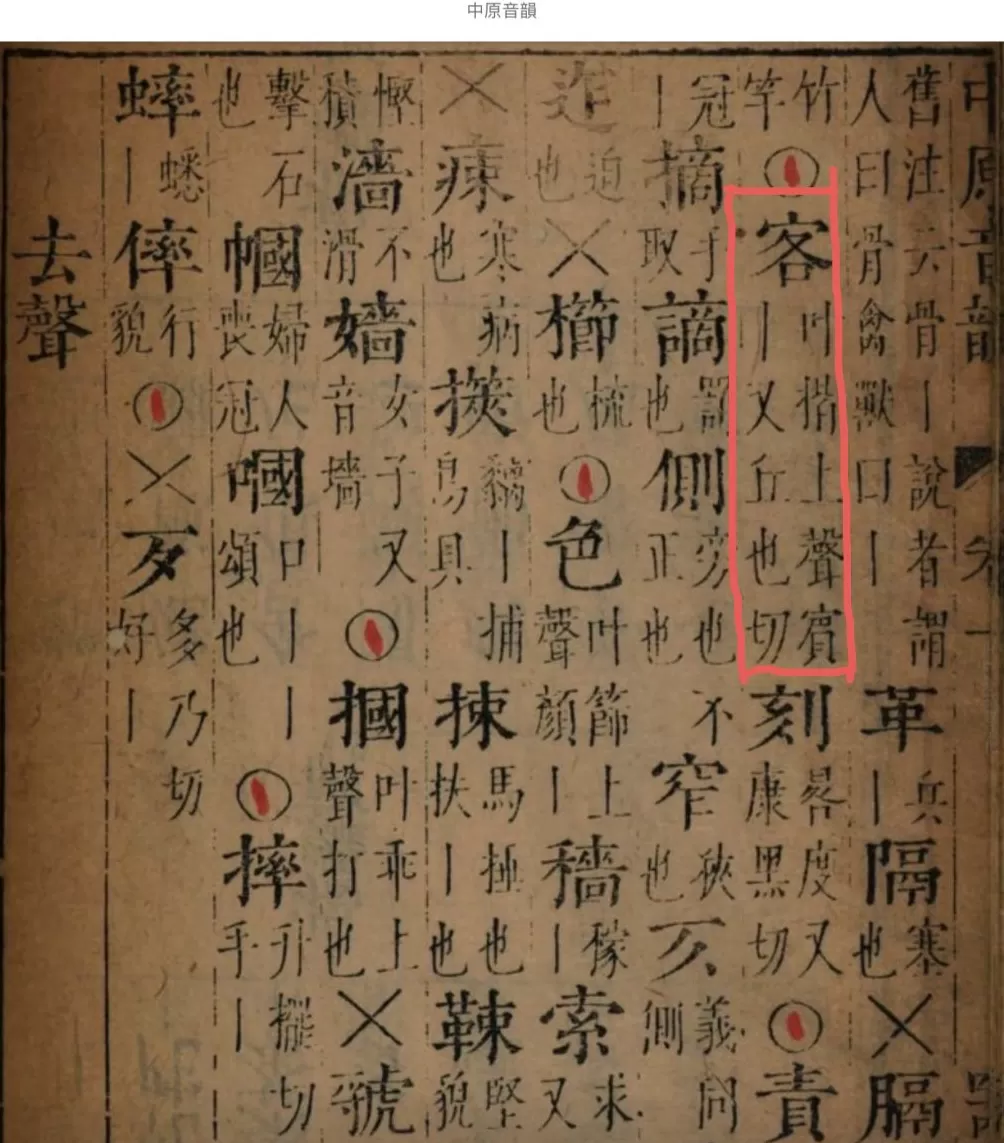 中原音韻
中原音韻
舊注云骨丨說者謂人曰骨禽獸曰丨革兵丨隔塞也╳膈
竹竿〇客叶揩上聲賓丨又丘也切刻晷度又康黑切〇責
冠丨摘手取謫罰也側旁也不正也窄狹也仄義同側
迮迫也╳櫛梳也〇色叶篩上聲顏丨穡稼丨索求又
╳寒病也捕鳥具丨馬捶也扶丨堅貌
慳積濇不滑嬙女子又音墻〇摑叶乖上聲打也╳虢
擊石也幗婦人喪冠嘓口丨丨頌也〇摔升擺切手丨
蟀蟋丨行貌〇╳歹多乃切好丨
去聲